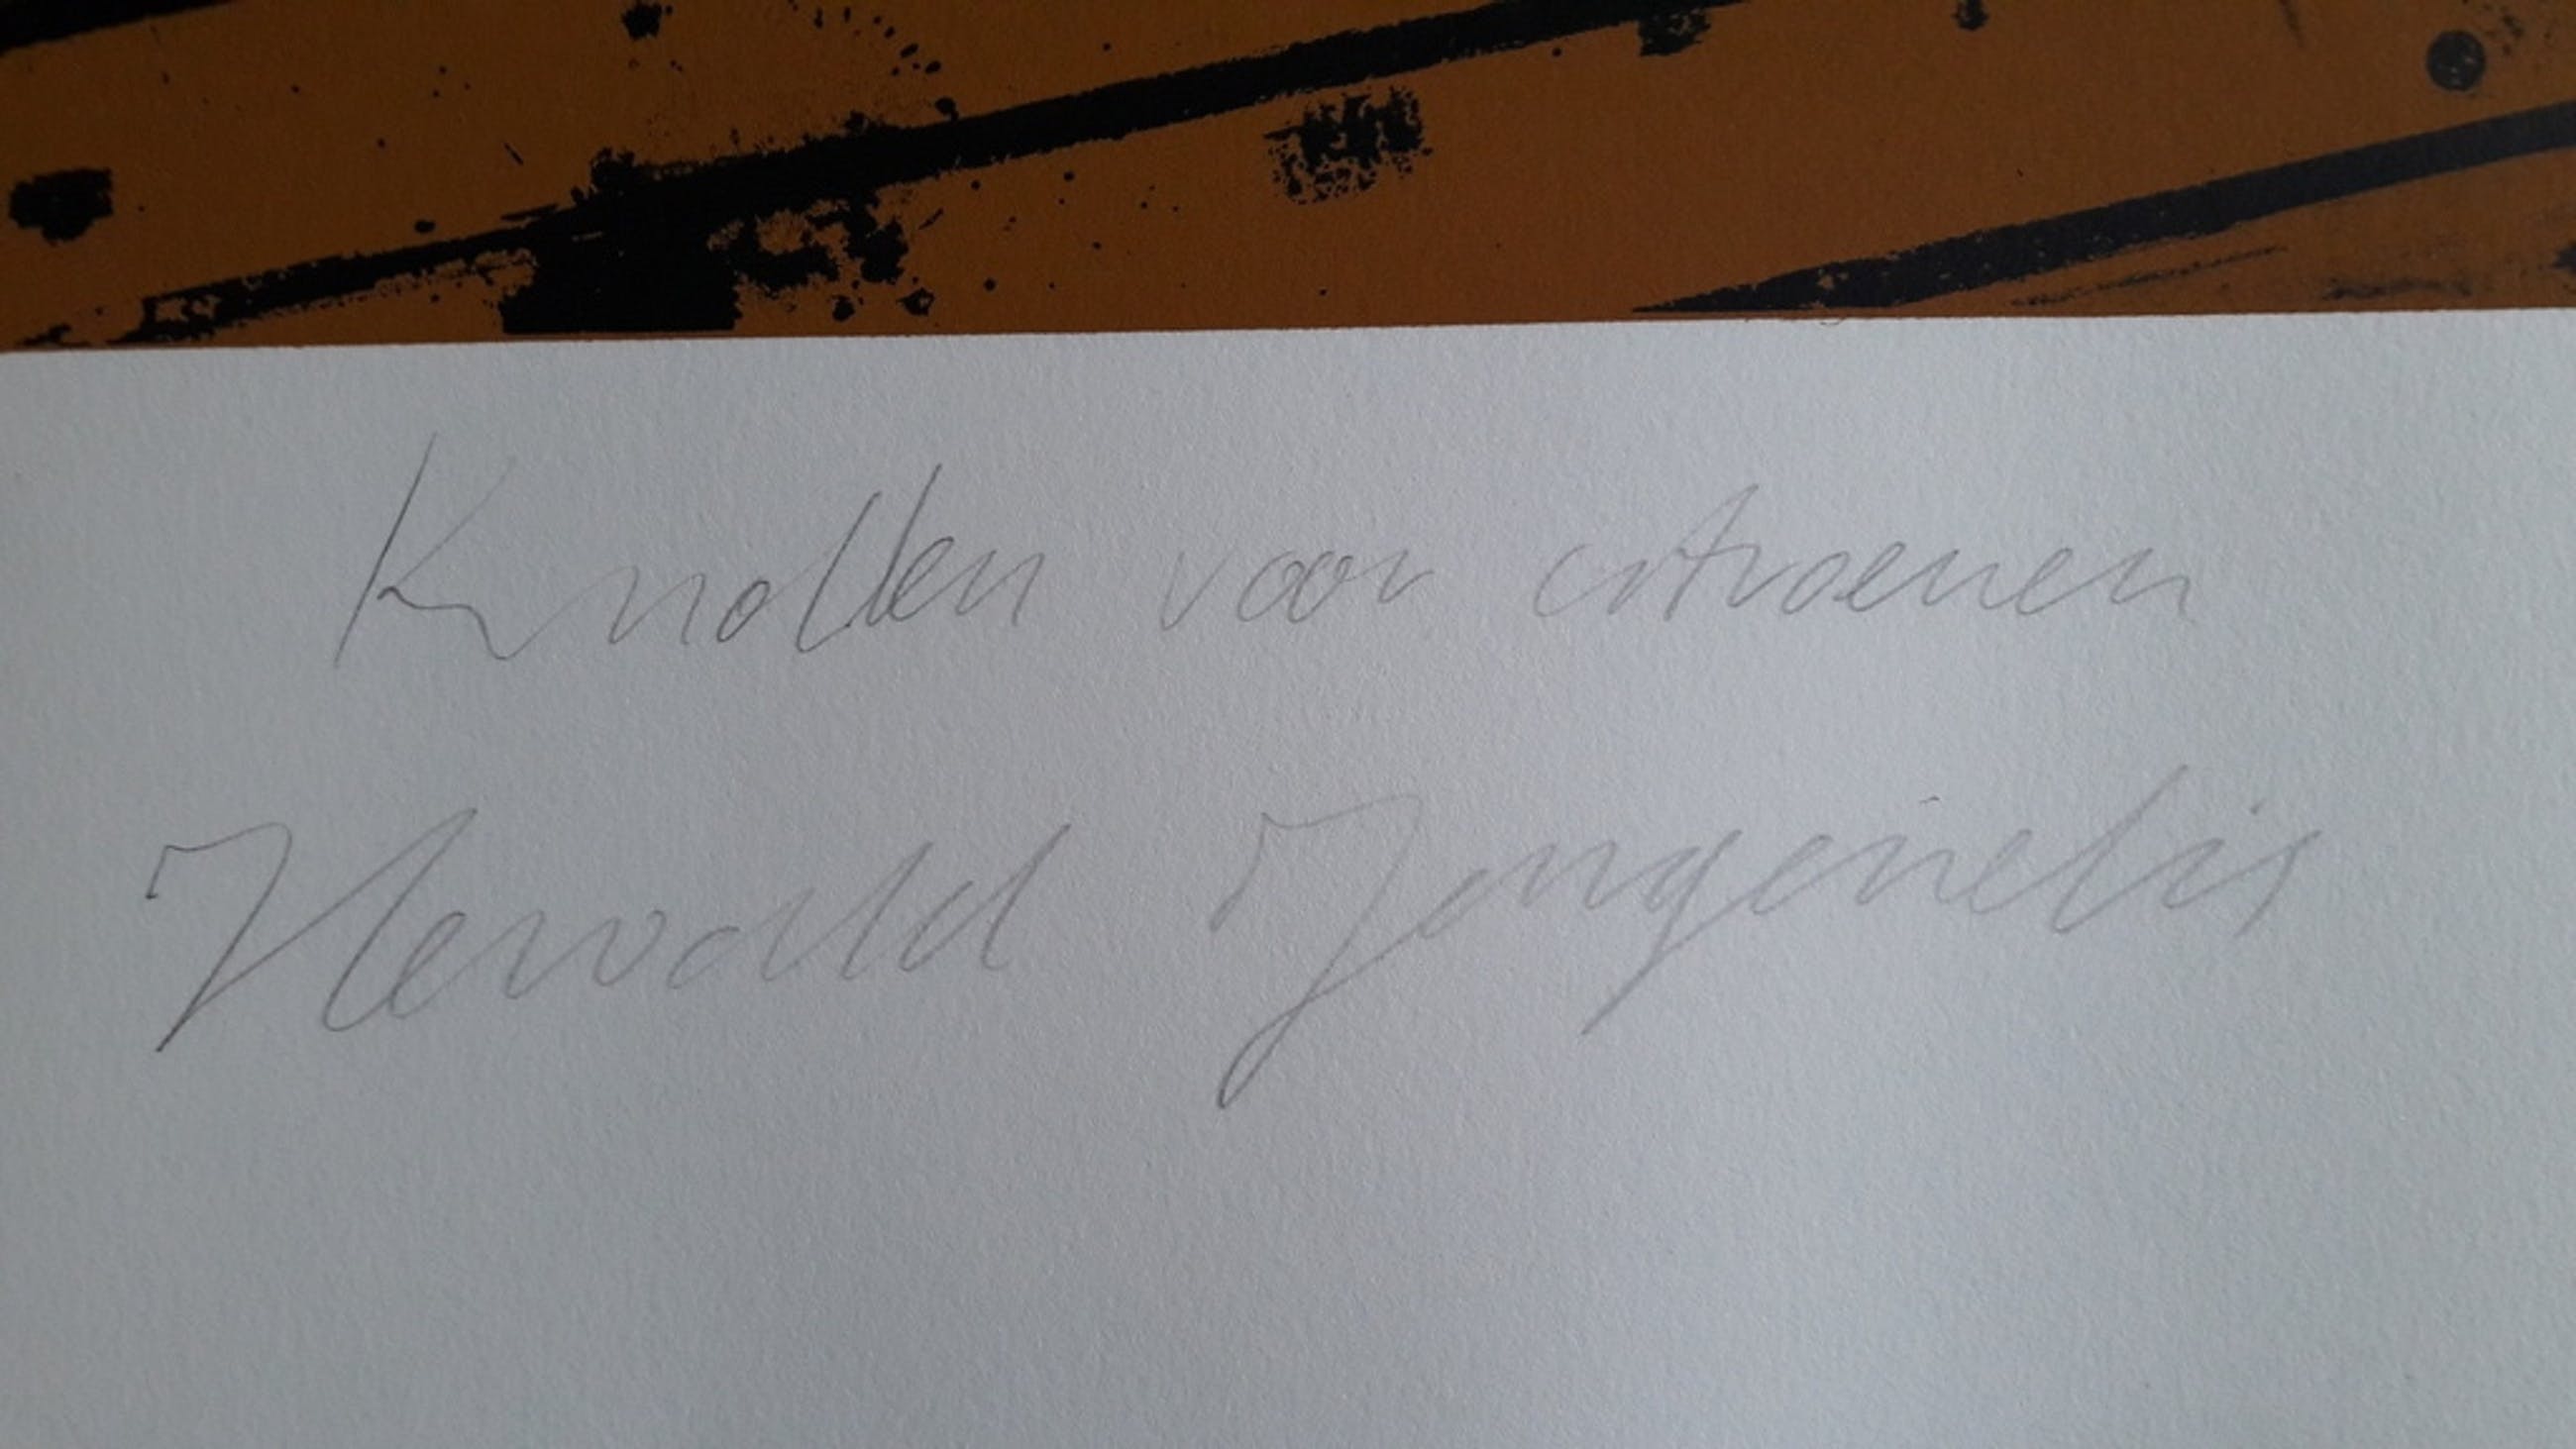 Knollen voor citroenen
Hewald Jongenelis